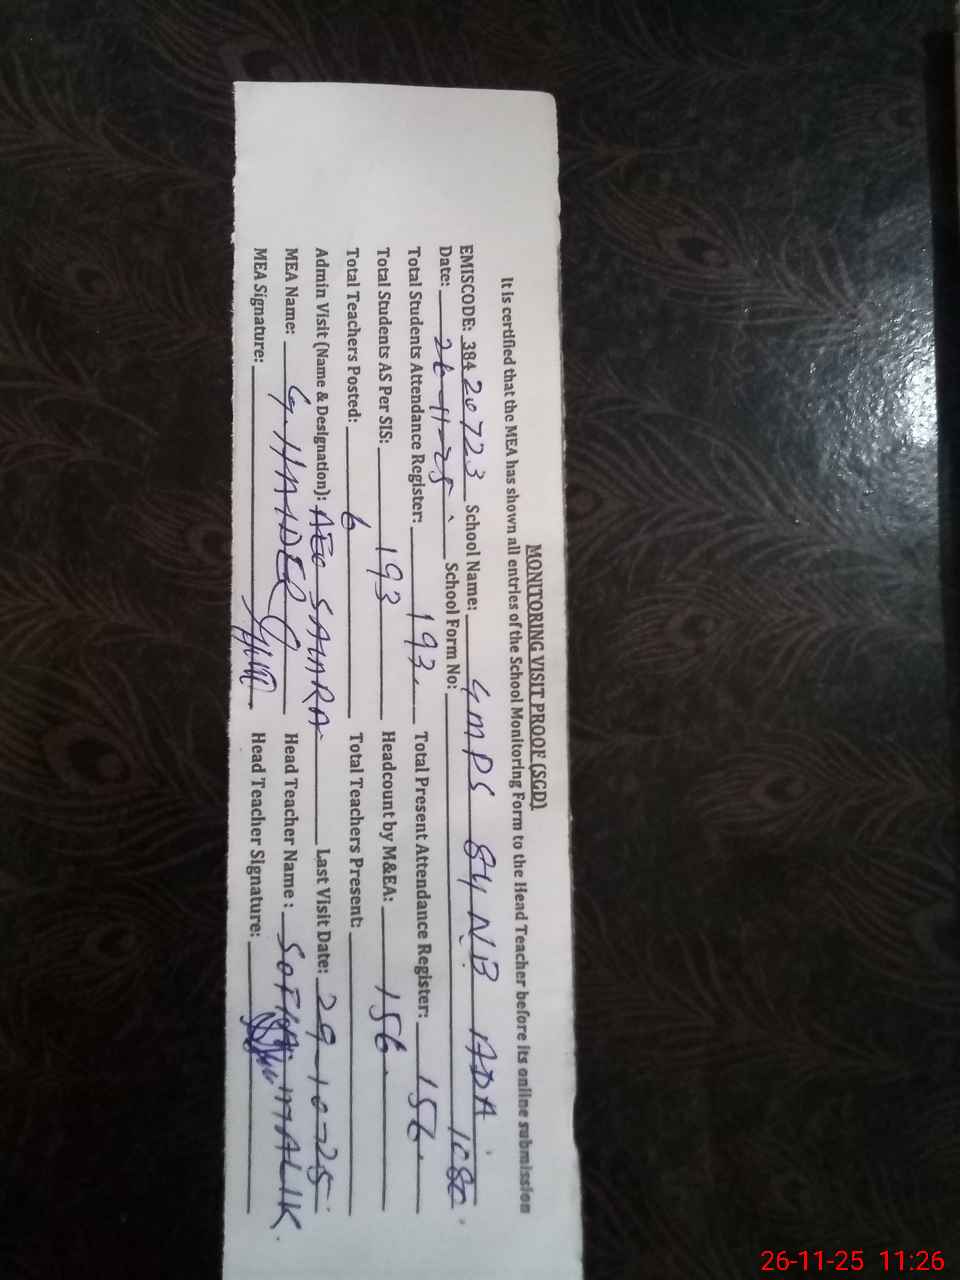 MONITORING VISIT PROOF (SGD)
It is certified that the MEA has shown all entries of the School Monitoring Form to the Head Teacher before its online submission
EMISCODE: 38420723 School Name: GMPS 84 NB ADA
Date: 26-11-25 School Form No:
Total Students Attendance Register: 193 Total Present Attendance Register: 156
Total Students AS Per SIS: 193 Headcount by M&EA: 156
Total Teachers Posted: 6 Total Teachers Present:
Admin Visit (Name & Designation): AEO SAIARA Last Visit Date: 29-10-25
MEA Name: G. HAIDER Head Teacher Name : SOFIA MALIK.
MEA Signature: Head Teacher Signature:
26-11-25 11:26